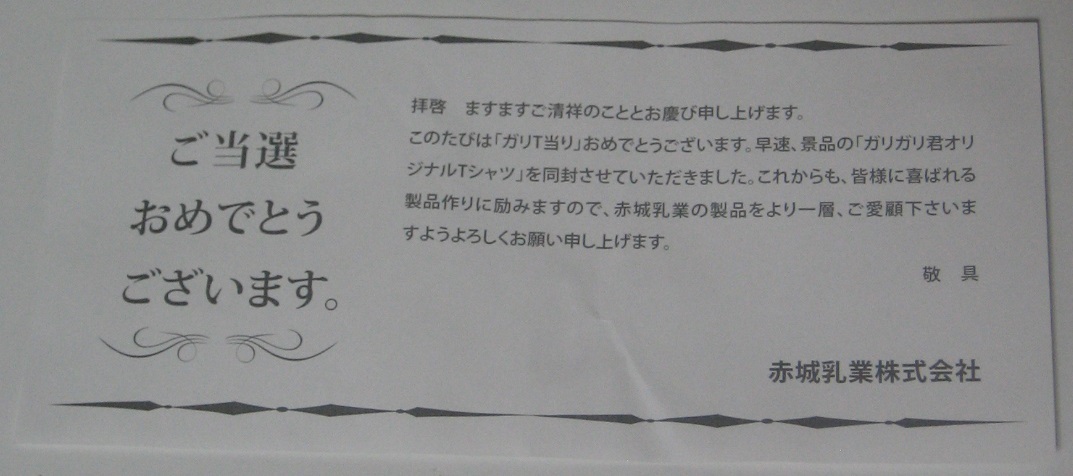 ご当選
おめでとう
ございます。
拝啓　ますますご清祥のこととお慶び申し上げます。
このたびは「ガリT当り」おめでとうございます。早速、景品の「ガリガリ君オリ
ジナルTシャツ」を同封させていただきました。これからも、皆様に喜ばれる
製品作りに励みますので、赤城乳業の製品をより一層、ご愛顧下さいま
すようよろしくお願い申し上げます。
敬　具
赤城乳業株式会社